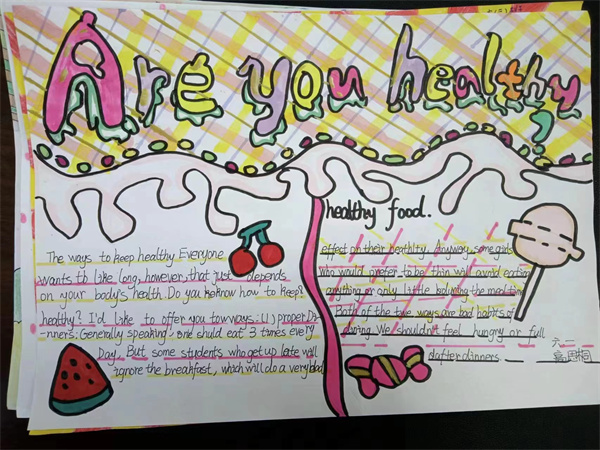 Are you healthy,
The ways to keep healthy Everyone
wants th like long, however, that just depends
on your body's health. Do you keknow how to keep?
healthy? I'd like to offer you towways: (1) proper Di-
nners: Generally speaking, one shuld eat 3 times every
Day. But some students who get up late will
ignore the breakfast, which will do a very bad
healthy food.
effect on their healthlty. Anyway, some girls
who would prefer to be thin will avoid eating
anything or only little the
Both of the two ways are bad habits of
We shouldn't feel hungry or full
dafter dinners.
六二